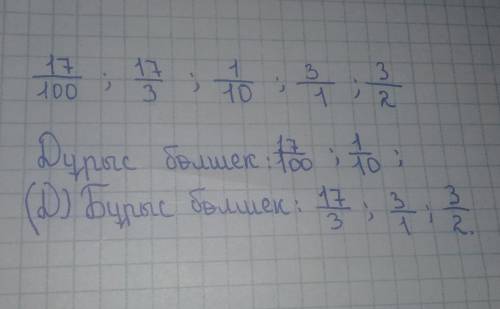 17/100 ; 17/3 ; 1/10 ; 3/1 ; 3/2
Дұрыс бөлшек: 17/100 ; 1/10 ;
(D) Бұрыс бөлшек: 17/3 ; 3/1 ; 3/2.